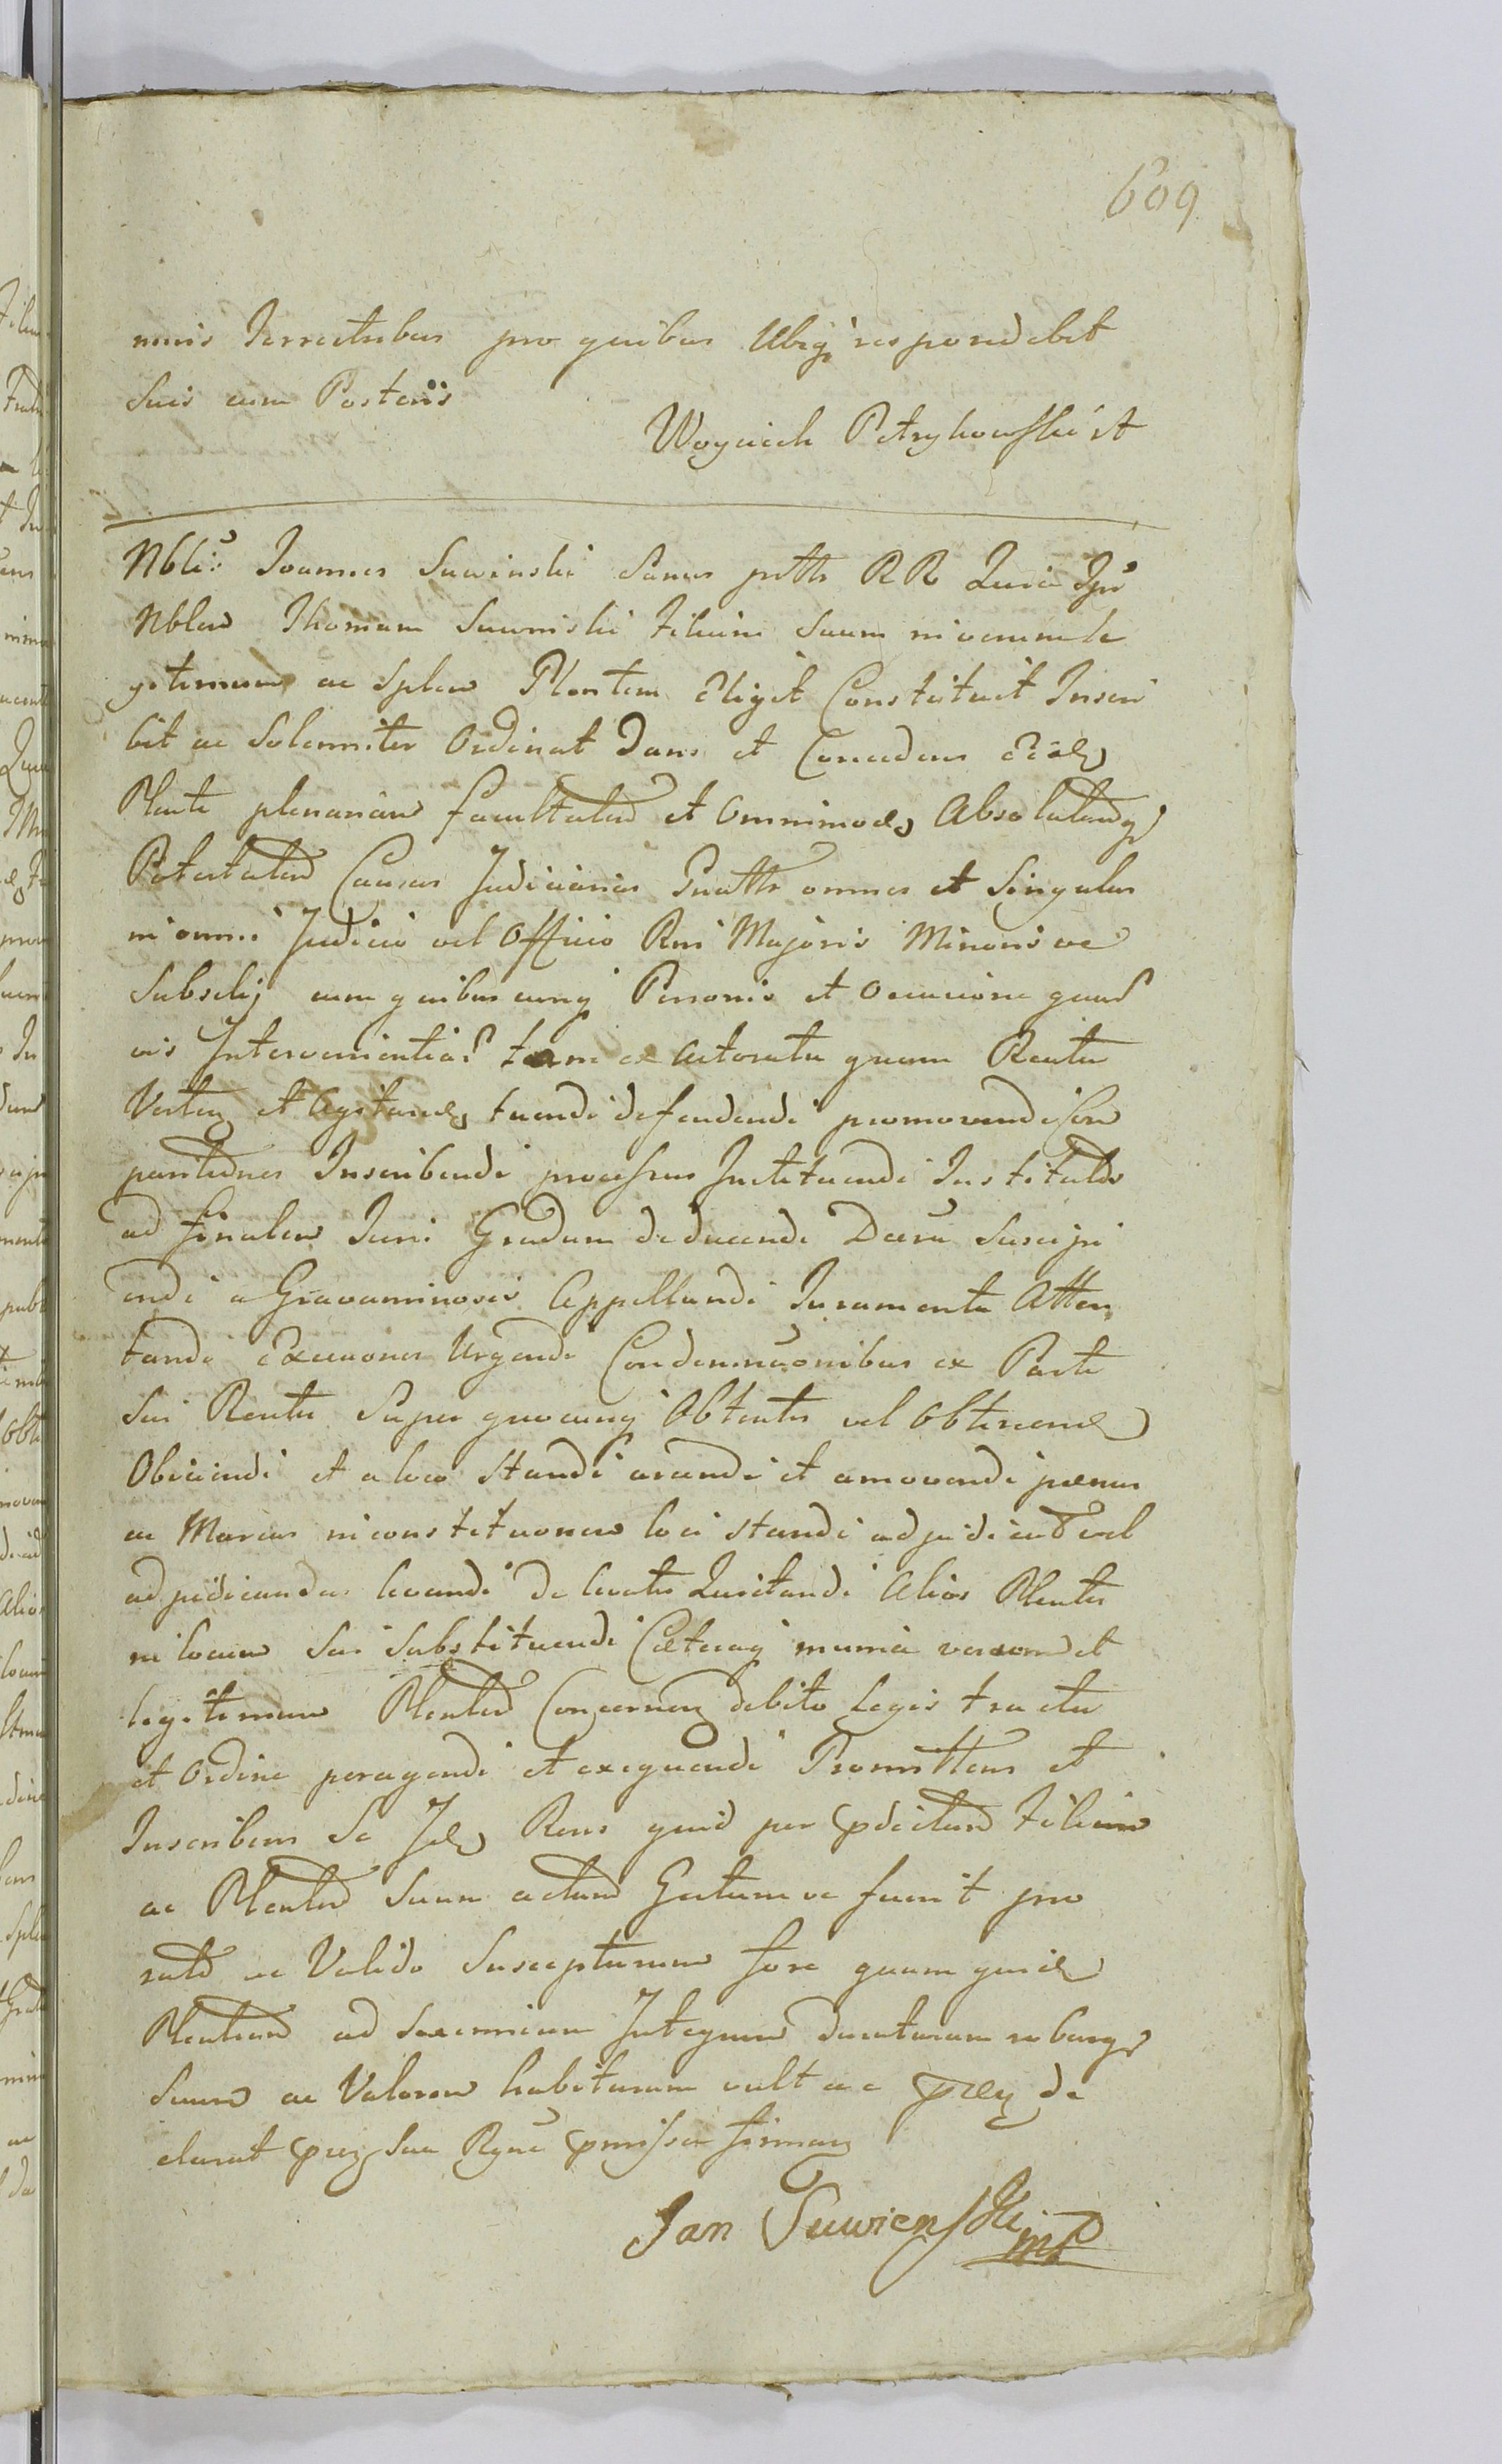 609
nunis Terrestribus pro quibus Ubiq respondebit
Suis cum Posteris
Woyciech Petrykowski
Nblis Joannes Suwinski Sanus pttr RR Quia Ipse
Nblem Thomam Suwinski Filium Suum in verum le
gitimum ac Splem Plentem Eligit Constituit Inscri
bit ac Solenniter Ordinat Dans et Concedens
Plenti plenariam facultatem et Omnimodam Absolutamq
Potestatem Causas Judiciarias omnes et Singulas
in omni Judicio vel Officio Rni Majoris Minorisve
Subselij cum quibuscunq Personis et occasione quas
vis Intervenientias tam ex Actoratu quam Reatu
Verten et Agitand tuendi defendendi promovendi Com
paritiones Inscribendi processus Instituendi Institutos
ad finalem Juris Gradum deducendi Decreta Suscipi
endi a Gravaminosis Appellandi Juramenta Atten
tandi Executiones Urgendi Condemnaonibus ex Parte
Sui Reatu Super quocunq Obtentis vel Obtinend
Obiciendi et a loco Standi arcendi et amovendi paenas
ac Marcas in constitutionem loci Standi adjudicat vel
adjudicandas levandi de levatis Quietandi Alios Plentes
in locum Sui Substituendi Caeteraq munia verum et
legitimum Plentem Concernen debito Legis tractu
et Ordine peragendi et exequendi Promittens et
Inscribens Se Id Rens quid per pdictum Filium
ac Plentem Suum actum Gestum ve fuerit pro
rato ac Valido Suscepturum fore quam quid
Plentiam ad Sexennium Integrum duraturam roburq
Suum ac Valorem habituram vult ac de
clarat Sua pmissa firman
Jan Suwienski mp